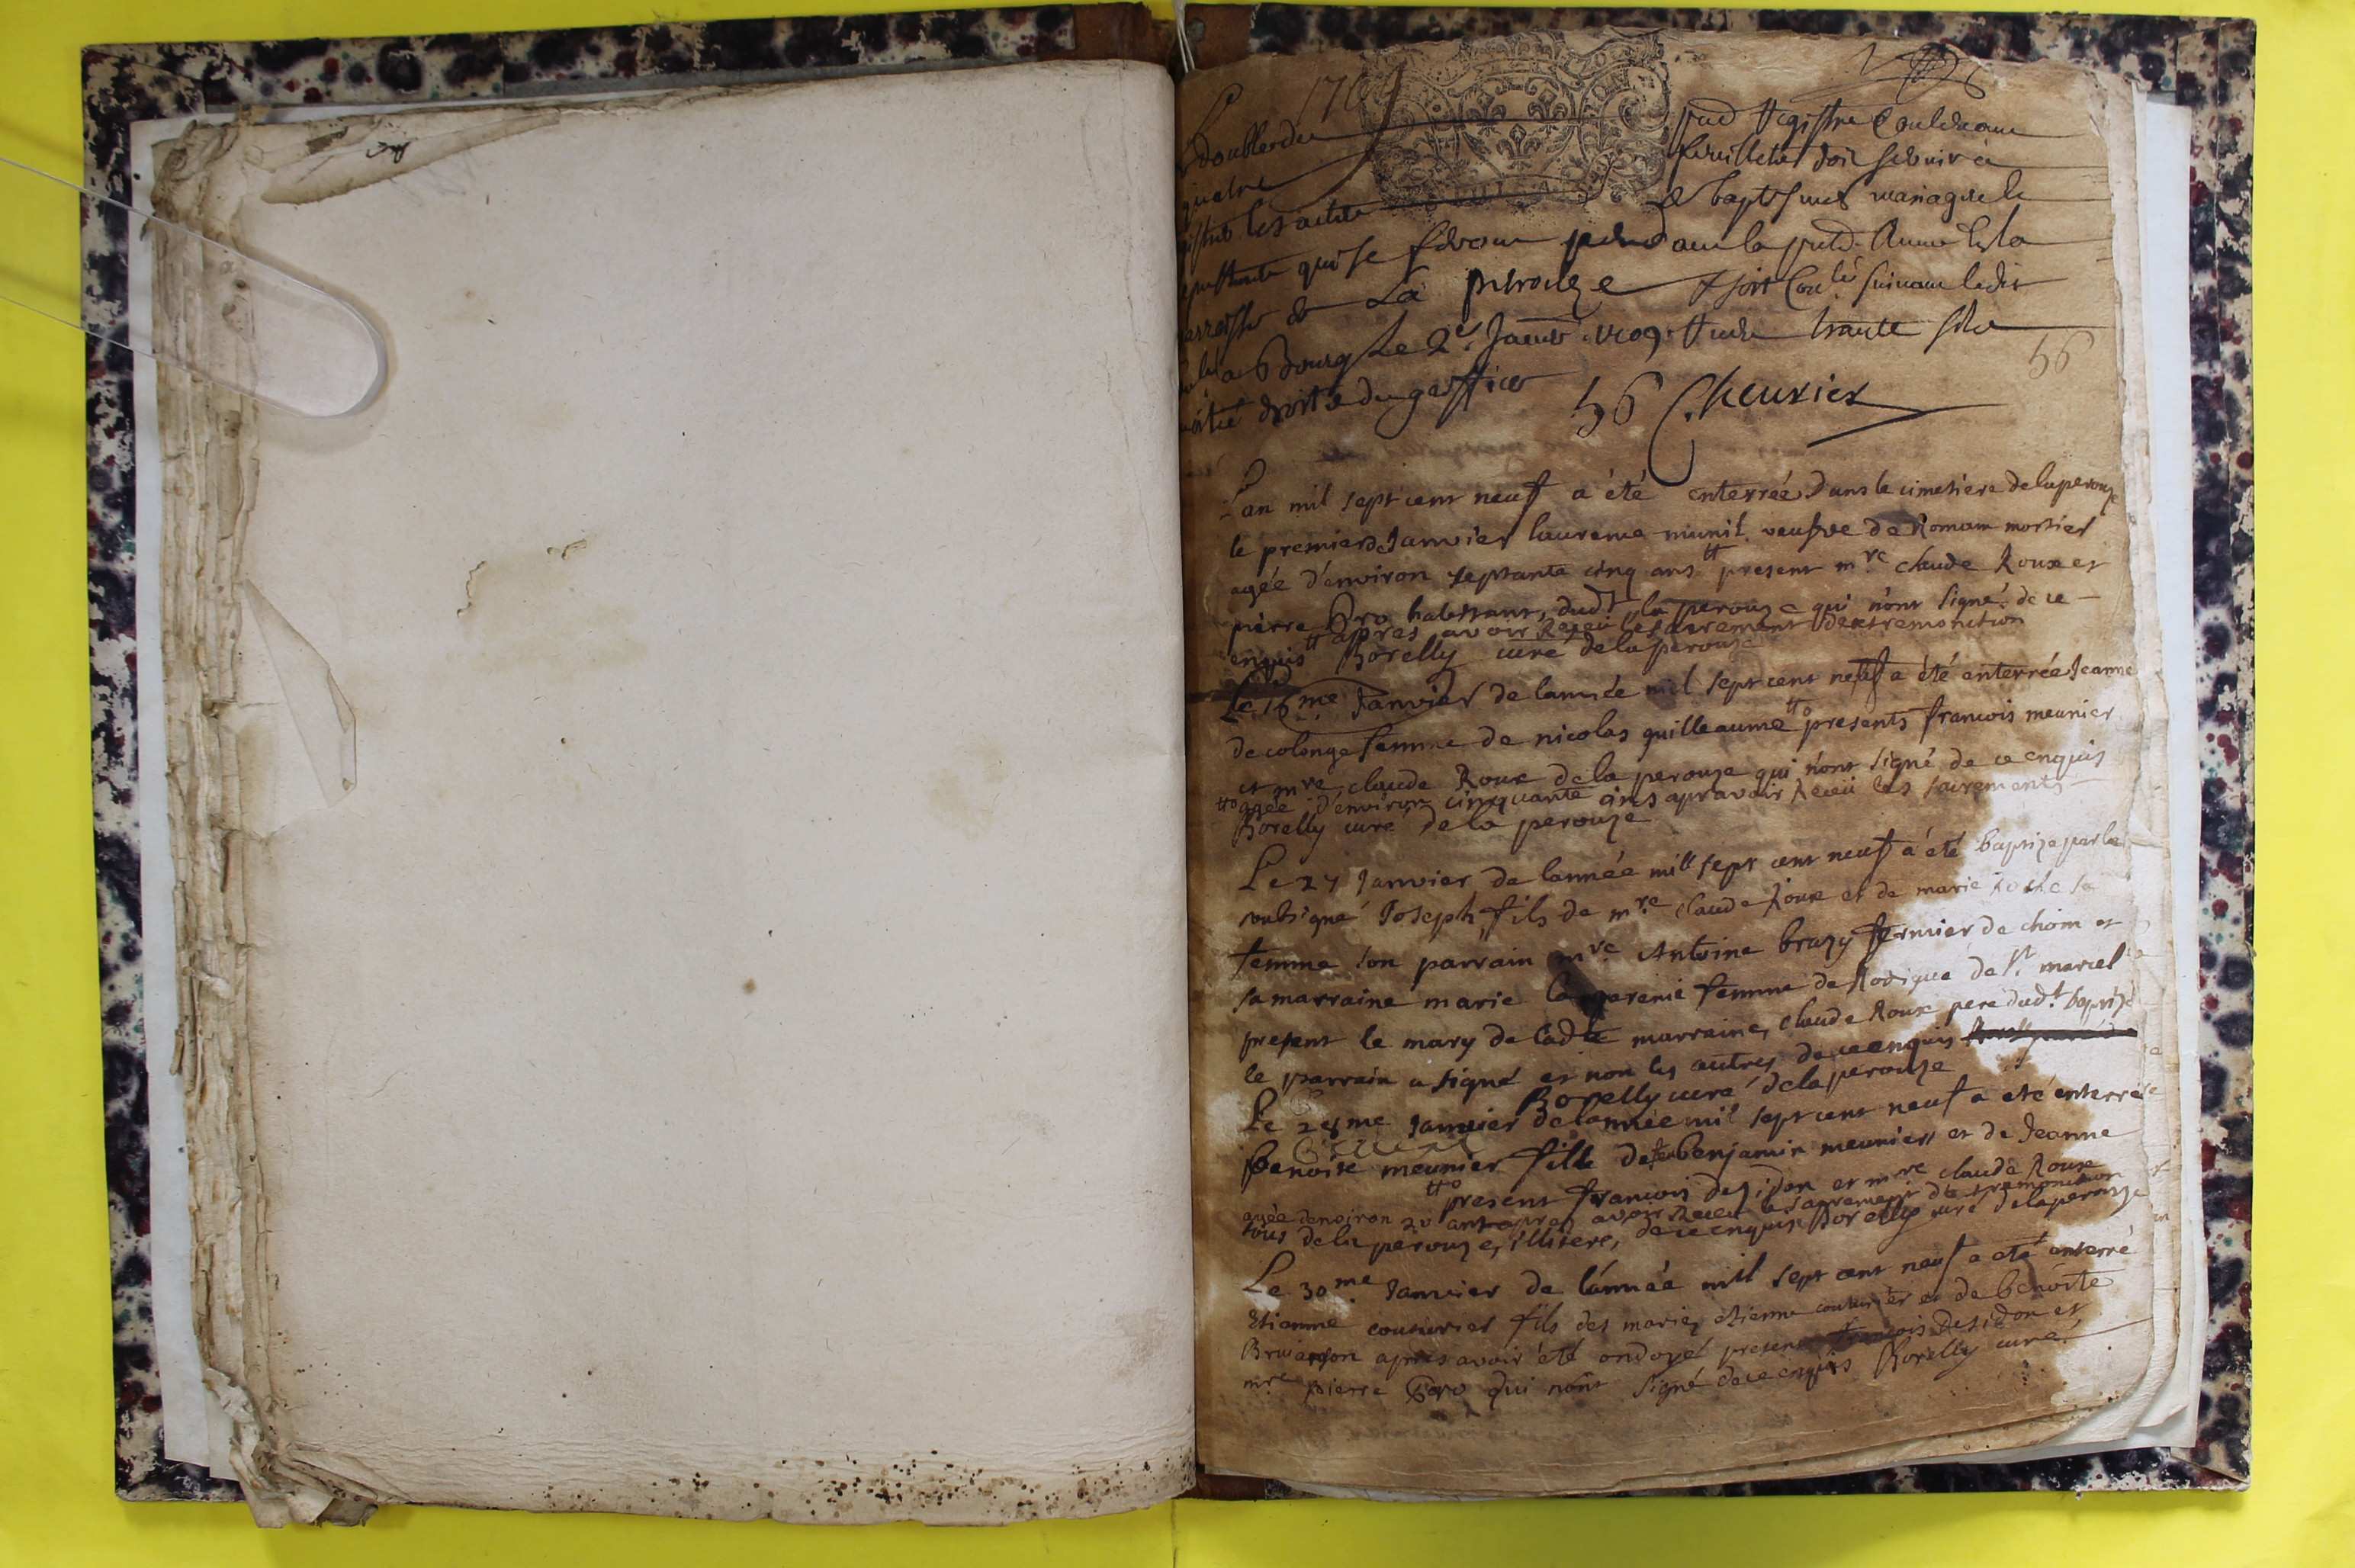 1709
Le double du pnt Registre Contenant
quatre feuillets doit servir à
les actes de baptesmes mariages &
qui se feront pendant la pnte Année En la
parroisse de La perouze soit Cotté suivant ledit
a Bourg Le 2e Janvier 1709
moitié droits du greffier 56 Cheurier
56
L'an mil sept cent neuf a été enterrée dans le cimetiere de la perouze
le premier de Janvier laurence munit veufve de Romain mortier
agée d'environ septante cinq ans tt present mre claude Roux et
pierre Pro habitants dudt la perouze qui n'ont signé de ce
tt apres avoir Receu le sacrement dextremonction
enquis Borelly curé de la perouze
Le 16me Janvier de lannée mil sept cent neuf a été enterrée Jeanne
de colonge femme de nicolas guilleaume tto presents francois meunier
et mre claude Roux de la perouze qui n'ont signé de ce enquis
tto agée d'environ cinquante ans apr avoir Receu les sacrements
Borelly curé de la perouze
Le 27 Janvier de lannée mill sept cent neuf a été baptize par le
soubsigné Joseph fils de mre claude Roux et de marie sa
femme son parrain mre Antoine brazy fermier de choin et
sa marraine marie femme de Rodigue de st marcel
present le mary de ladte marraine, claude Roux pere dudt baptizé
le parrain a signé et non les autres de ce enquis
Borelly curé de la perouze
Le 28me Janvier de lannée mil sept cent neuf a eté enterrée
Benoite meunier fille de feu benjamin meunier et de Jeanne
tto present francois desidon et mre claude Roux
agée denviron 20 ans apres avoir Receu le sacrement dextremonction
tous de la perouze, illiteré, de ce enquis Borelly curé de la perouze
Le 30me Janvier de lannée mill sept cent neuf a eté enterré
Etienne couturier fils des mariez etienne couturier et de benoite
apres avoir été ondoyé present francois desidon et
mre pierre Pro qui n'ont signé de ce enquis Borelly curé